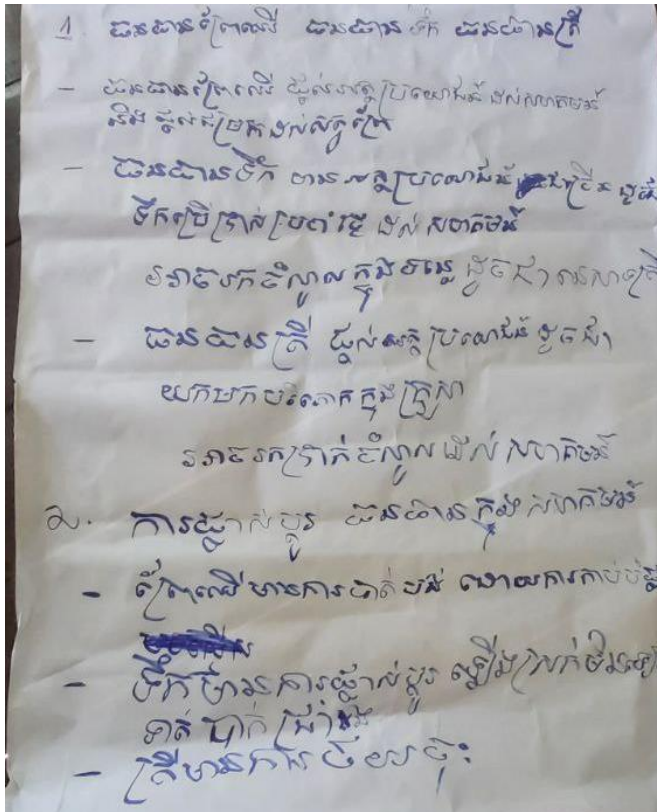 1. ធនធានព្រៃឈើ ធនធានទឹក ធនធានត្រី
- ធនធានព្រៃឈើ ផ្តល់អត្ថប្រយោជន៍ ដល់សហគមន៍
និង ផ្តល់ជម្រកដល់សត្វព្រៃ
- ធនធានទឹក មានអត្ថប្រយោជន៍ ជាច្រើន ដូចជា
ទឹកប្រើប្រាស់ប្រចាំថ្ងៃ ដល់សហគមន៍
រកចំណូលក្នុងទន្លេ ដូចជា
- ធនធានត្រី ផ្តល់អត្ថប្រយោជន៍ ដូចជា
យកមកបរិភោគក្នុងគ្រួសារ
រកប្រាក់ចំណូលដល់សហគមន៍
២. ការផ្លាស់ប្តូរ ធនធានក្នុងសហគមន៍
- ព្រៃឈើមានការបាត់បង់ ដោយការកាប់
- ទឹកមានការផ្លាស់ប្តូរ ឡើងស្រក់មិន
បាក់ច្រាំង
- ត្រីមានការថយចុះ